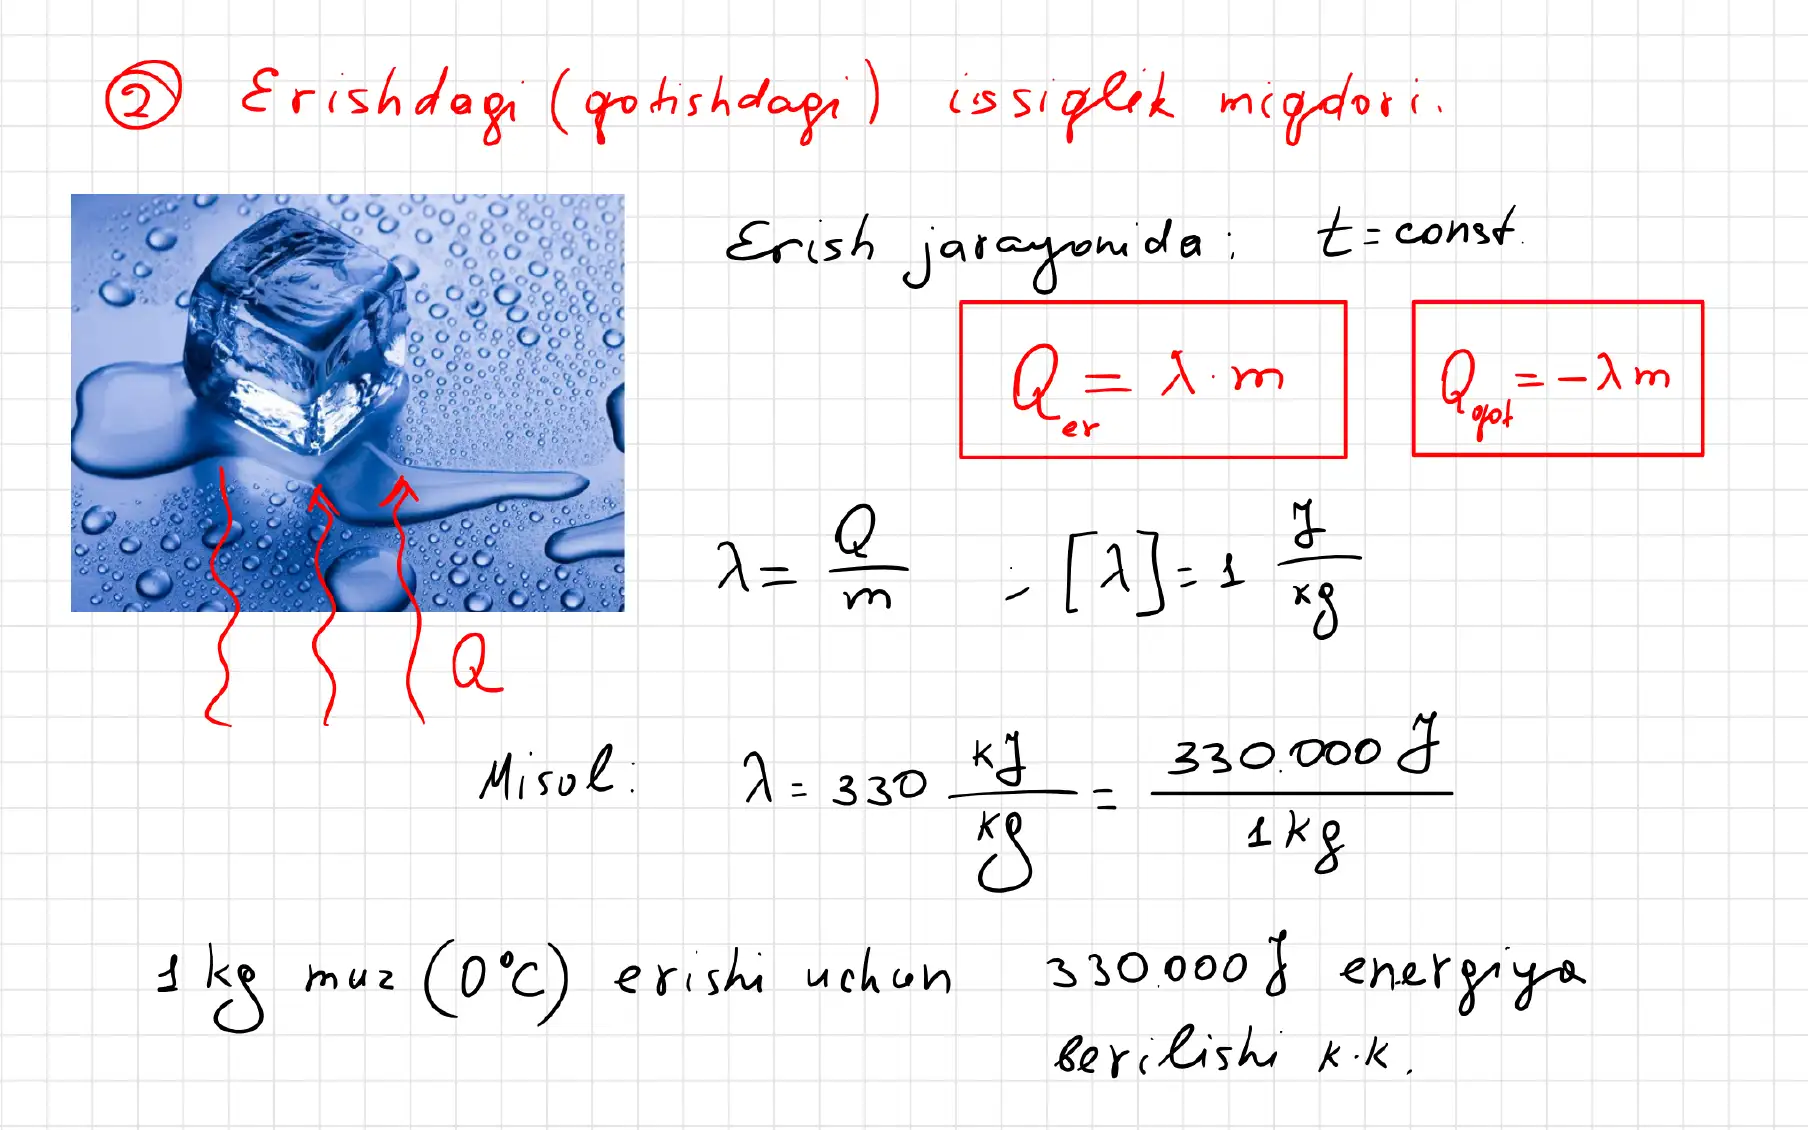 ② Erishdagi (qotishdagi) issiqlik miqdori.
Erish jarayonida: t = const.
Q_er = λ · m
Q_qot = - λ m
λ = Q/m ; [λ] = 1 J/kg
Q
Misol: λ = 330 kJ/kg = 330.000 J / 1 kg
1 kg muz (0°C) erishi uchun 330.000 J energiya
berilishi k.k.